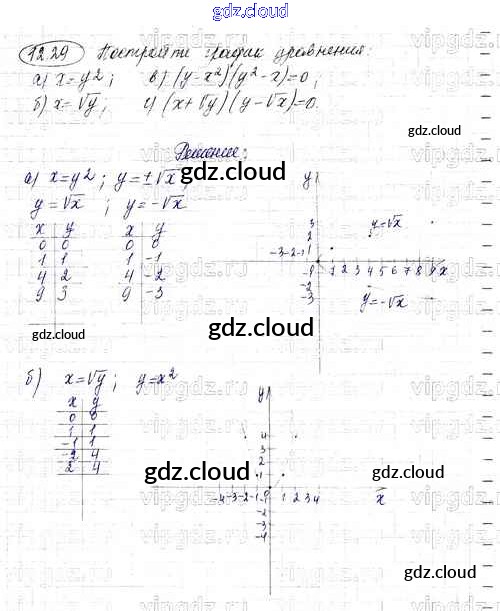 gdz.cloud
12.29 Постройте график уравнения:
а) x=y²; в) (y-x²)(y²-x)=0;
б) x=√y; г) (x+√y)(y-√x)=0.
Решение:
а) x=y²; y=±√x;
y=√x; y=-√x
x y x y
0 0 0 0
1 1 1 -1
4 2 4 -2
9 3 9 -3
y
3
2
1
y=√x
-3-2-1 0 1 2 3 4 5 6 7 8 9 x
-2
-3
y=-√x
б) x=√y; y=x²
x y
0 0
1 1
-1 1
-2 4
2 4
y
4
3
2
1
-4-3-2-1 0 1 2 3 4 x
-2
-3
-4
gdz.cloud
gdz.cloud
gdz.cloud
gdz.cloud
gdz.cloud
gdz.cloud
gdz.cloud
vipgdz.ru